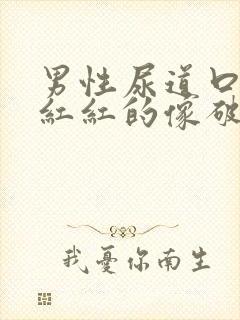 男性尿道口
红红的像破
我憂你南生